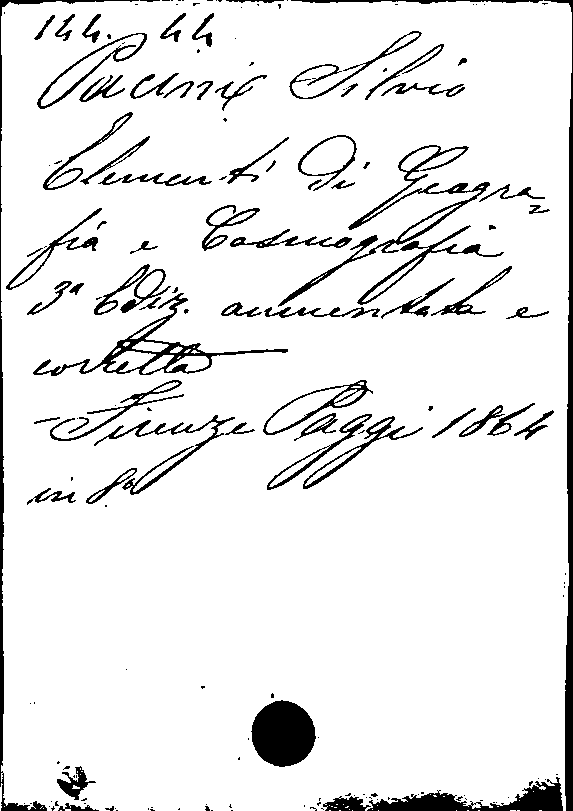 144. 44
Pacini Silvio
Elementi di Geogra=
fia e Cosmografia
3ª Ediz. aumentata e
corretta
- Firenze Paggi 1864
in 8º